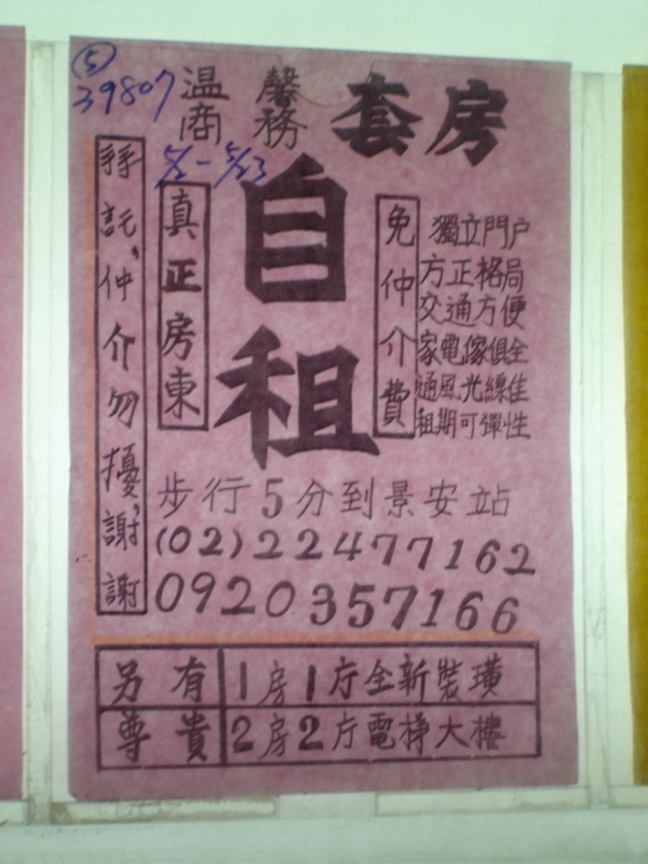 ⑤
39807
溫馨
商務
套房
5/2-5/23
自租
真正房東
免仲介費
獨立門戶
方正格局
交通方便
家電傢俱全
通風光線佳
租期可彈性
拜託，仲介勿擾，謝謝
步行5分到景安站
(02)22477162
0920357166
另有 1房1庁全新裝璜
尊貴 2房2庁電梯大樓